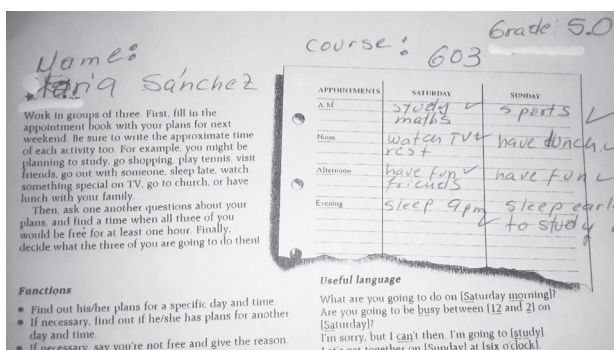 Grade: 5.0
Name:
course: 603
Sánchez
Work in groups of three. First, fill in the
appointment book with your plans for next
weekend. Be sure to write the approximate time
of each activity too. For example, you might be
planning to study, go shopping, play tennis, visit
friends, go out with someone, sleep late, watch
something special on TV, go to church, or have
lunch with your family.
Then, ask one another questions about your
plans, and find a time when all three of you
would be free for at least one hour. Finally,
decide what the three of you are going to do then!
APPOINTMENTS SATURDAY SUNDAY
A.M study maths sports
Noon watch TV rest have lunch.
Afternoon have fun friends have fun
Evening sleep 9pm sleep earl to study
Functions
• Find out his/her plans for a specific day and time.
• If necessary, find out if he/she has plans for another
day and time.
• If necessary, say you're not free and give the reason.
Useful language
What are you going to do on [Saturday morning]?
Are you going to be busy between [12 and 2] on
[Saturday]?
I'm sorry, but I can't then. I'm going to [study].
Let's get together on [Sunday] at [six o'clock].